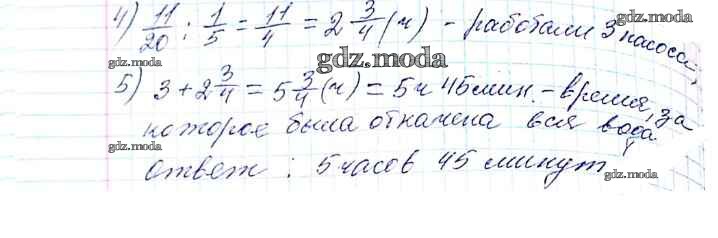 4) 11/20 : 1/5 = 11/4 = 2 3/4 (ч) - работали 3 насоса;
gdz.moda
gdz.moda
5) 3 + 2 3/4 = 5 3/4 (ч) = 5 ч 45 мин. - время, за
которое была откачена вся вода
gdz.moda
gdz.moda
ответ : 5 часов 45 минут
gdz.moda
gdz.moda